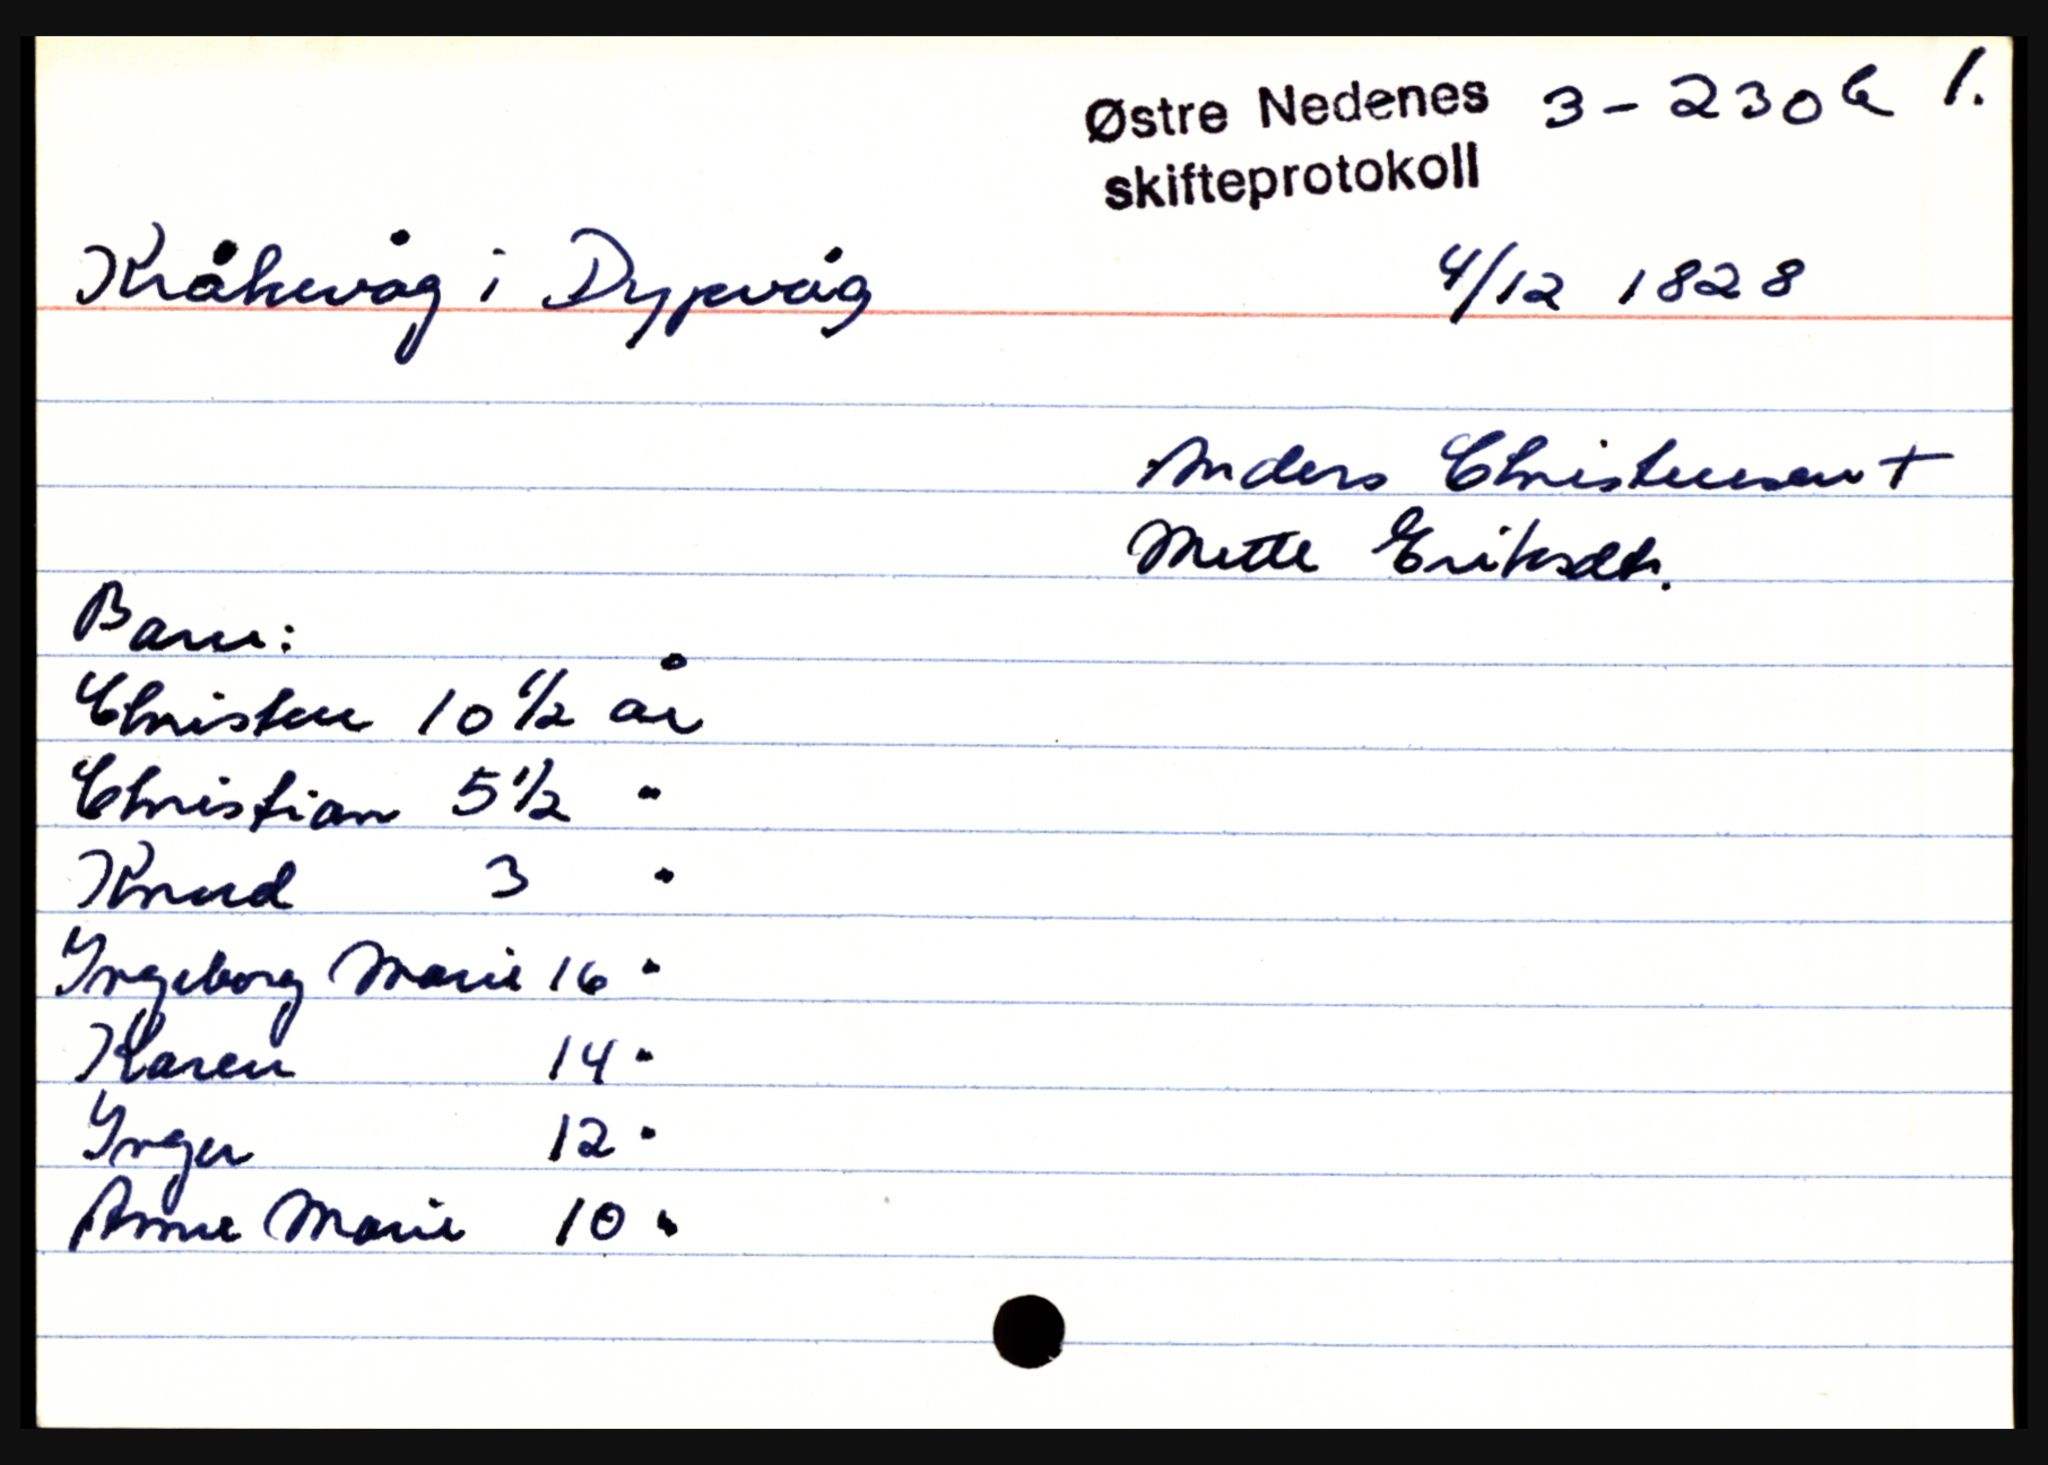 Østre Nedenes 3-230b 1.
skifteprotokoll
Kråkevåg i Dypvåg 4/12 1828
Anders Christensen +
Mette Eriksdtr.
Barn:
Christen 10 1/2 år
Christian 5 1/2 "
Knud 3 "
Ingeborg Marie 16 "
Karen 14 "
Inger 12 "
Anne Marie 10 "